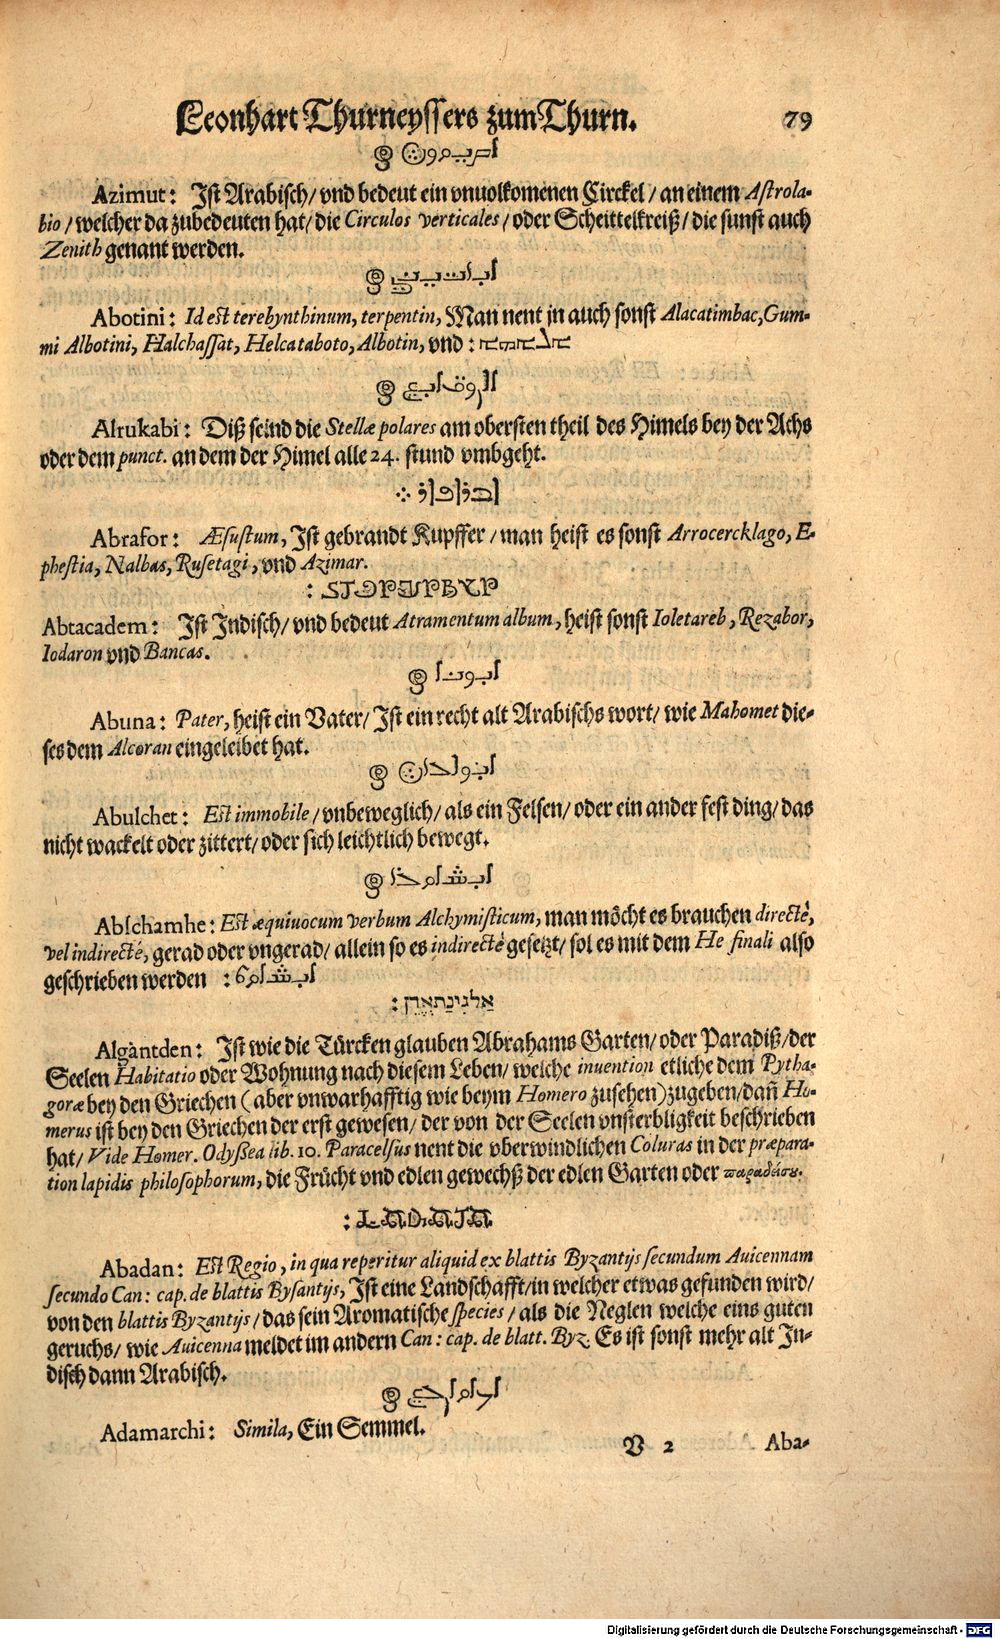 Leonhart Thurneyssers zum Thurn. 79
Azimut: Ist Arabisch/ vnd bedeut ein vnuolkomenen Circkel/ an einem Astrola-
bio/ welcher da zubedeuten hat/ die Circulos verticales/ oder Scheittelkreiß/ die sunst auch
Zenith genant werden.
Abotini: Id est terebynthinum, terpentin, Man nent jn auch sonst Alacatimbac, Gum-
mi Albotini, Halchassat, Helcataboto, Albotin, vnd:
Alrukabi: Diß seind die Stellæ polares am obersten theil des Himels bey der Achs
oder dem punct. an dem der Himel alle 24. stund vmbgeht.
Abrafor: Æsustum, Ist gebrandt Kupffer/ man heist es sonst Arrocercklago, E-
phestia, Nalbas, Rusetagi, vnd Azimar.
Abtacadem: Ist Indisch/ vnd bedeut Atramentum album, heist sonst Ioletareb, Rezabor,
Iodaron vnd Bancas.
Abuna: Pater, heist ein Vater/ Ist ein recht alt Arabischs wort/ wie Mahomet die-
ses dem Alcoran eingeleibet hat.
Abulchet: Est immobile/ vnbeweglich/ als ein Felsen/ oder ein ander fest ding/ das
nicht wackelt oder zittert/ oder sich leichtlich bewegt.
Abschamhe: Est æquiuocum verbum Alchymisticum, man möcht es brauchen directè,
vel indirectè, gerad oder vngerad/ allein so es indirectè gesetzt/ sol es mit dem He finali also
geschrieben werden:
Algàntden: Ist wie die Türcken glauben Abrahams Garten/ oder Paradiß/ der
Seelen Habitatio oder Wohnung nach diesem Leben/ welche inuention etliche dem Pytha-
goræ bey den Griechen (aber vnwarhafftig wie beym Homero zusehen) zugeben/ dañ Ho-
merus ist bey den Griechen der erst gewesen/ der von der Seelen vnsterbligkeit beschrieben
hat/ Vide Homer. Odyssea lib. 10. Paracelsus nent die vberwindlichen Coluras in der præpara-
tion lapidis philosophorum, die Frücht vnd edlen gewechß der edlen Garten oder
Abadan: Est Regio, in qua reperitur aliquid ex blattis Byzantijs secundum Auicennam
secundo Can: cap. de blattis Bysantijs, Ist eine Landschafft/ in welcher etwas gefunden wird/
von den blattis Byzantijs/ das sein Aromatische species/ als die Neglen welche eins guten
geruchs/ wie Auicenna meldet im andern Can: cap. de blatt. Byz. Es ist sonst mehr alt In-
disch dann Arabisch.
Adamarchi: Simila, Ein Semmel.
V 2 Aba-
Digitalisierung gefördert durch die Deutsche Forschungsgemeinschaft - DFG